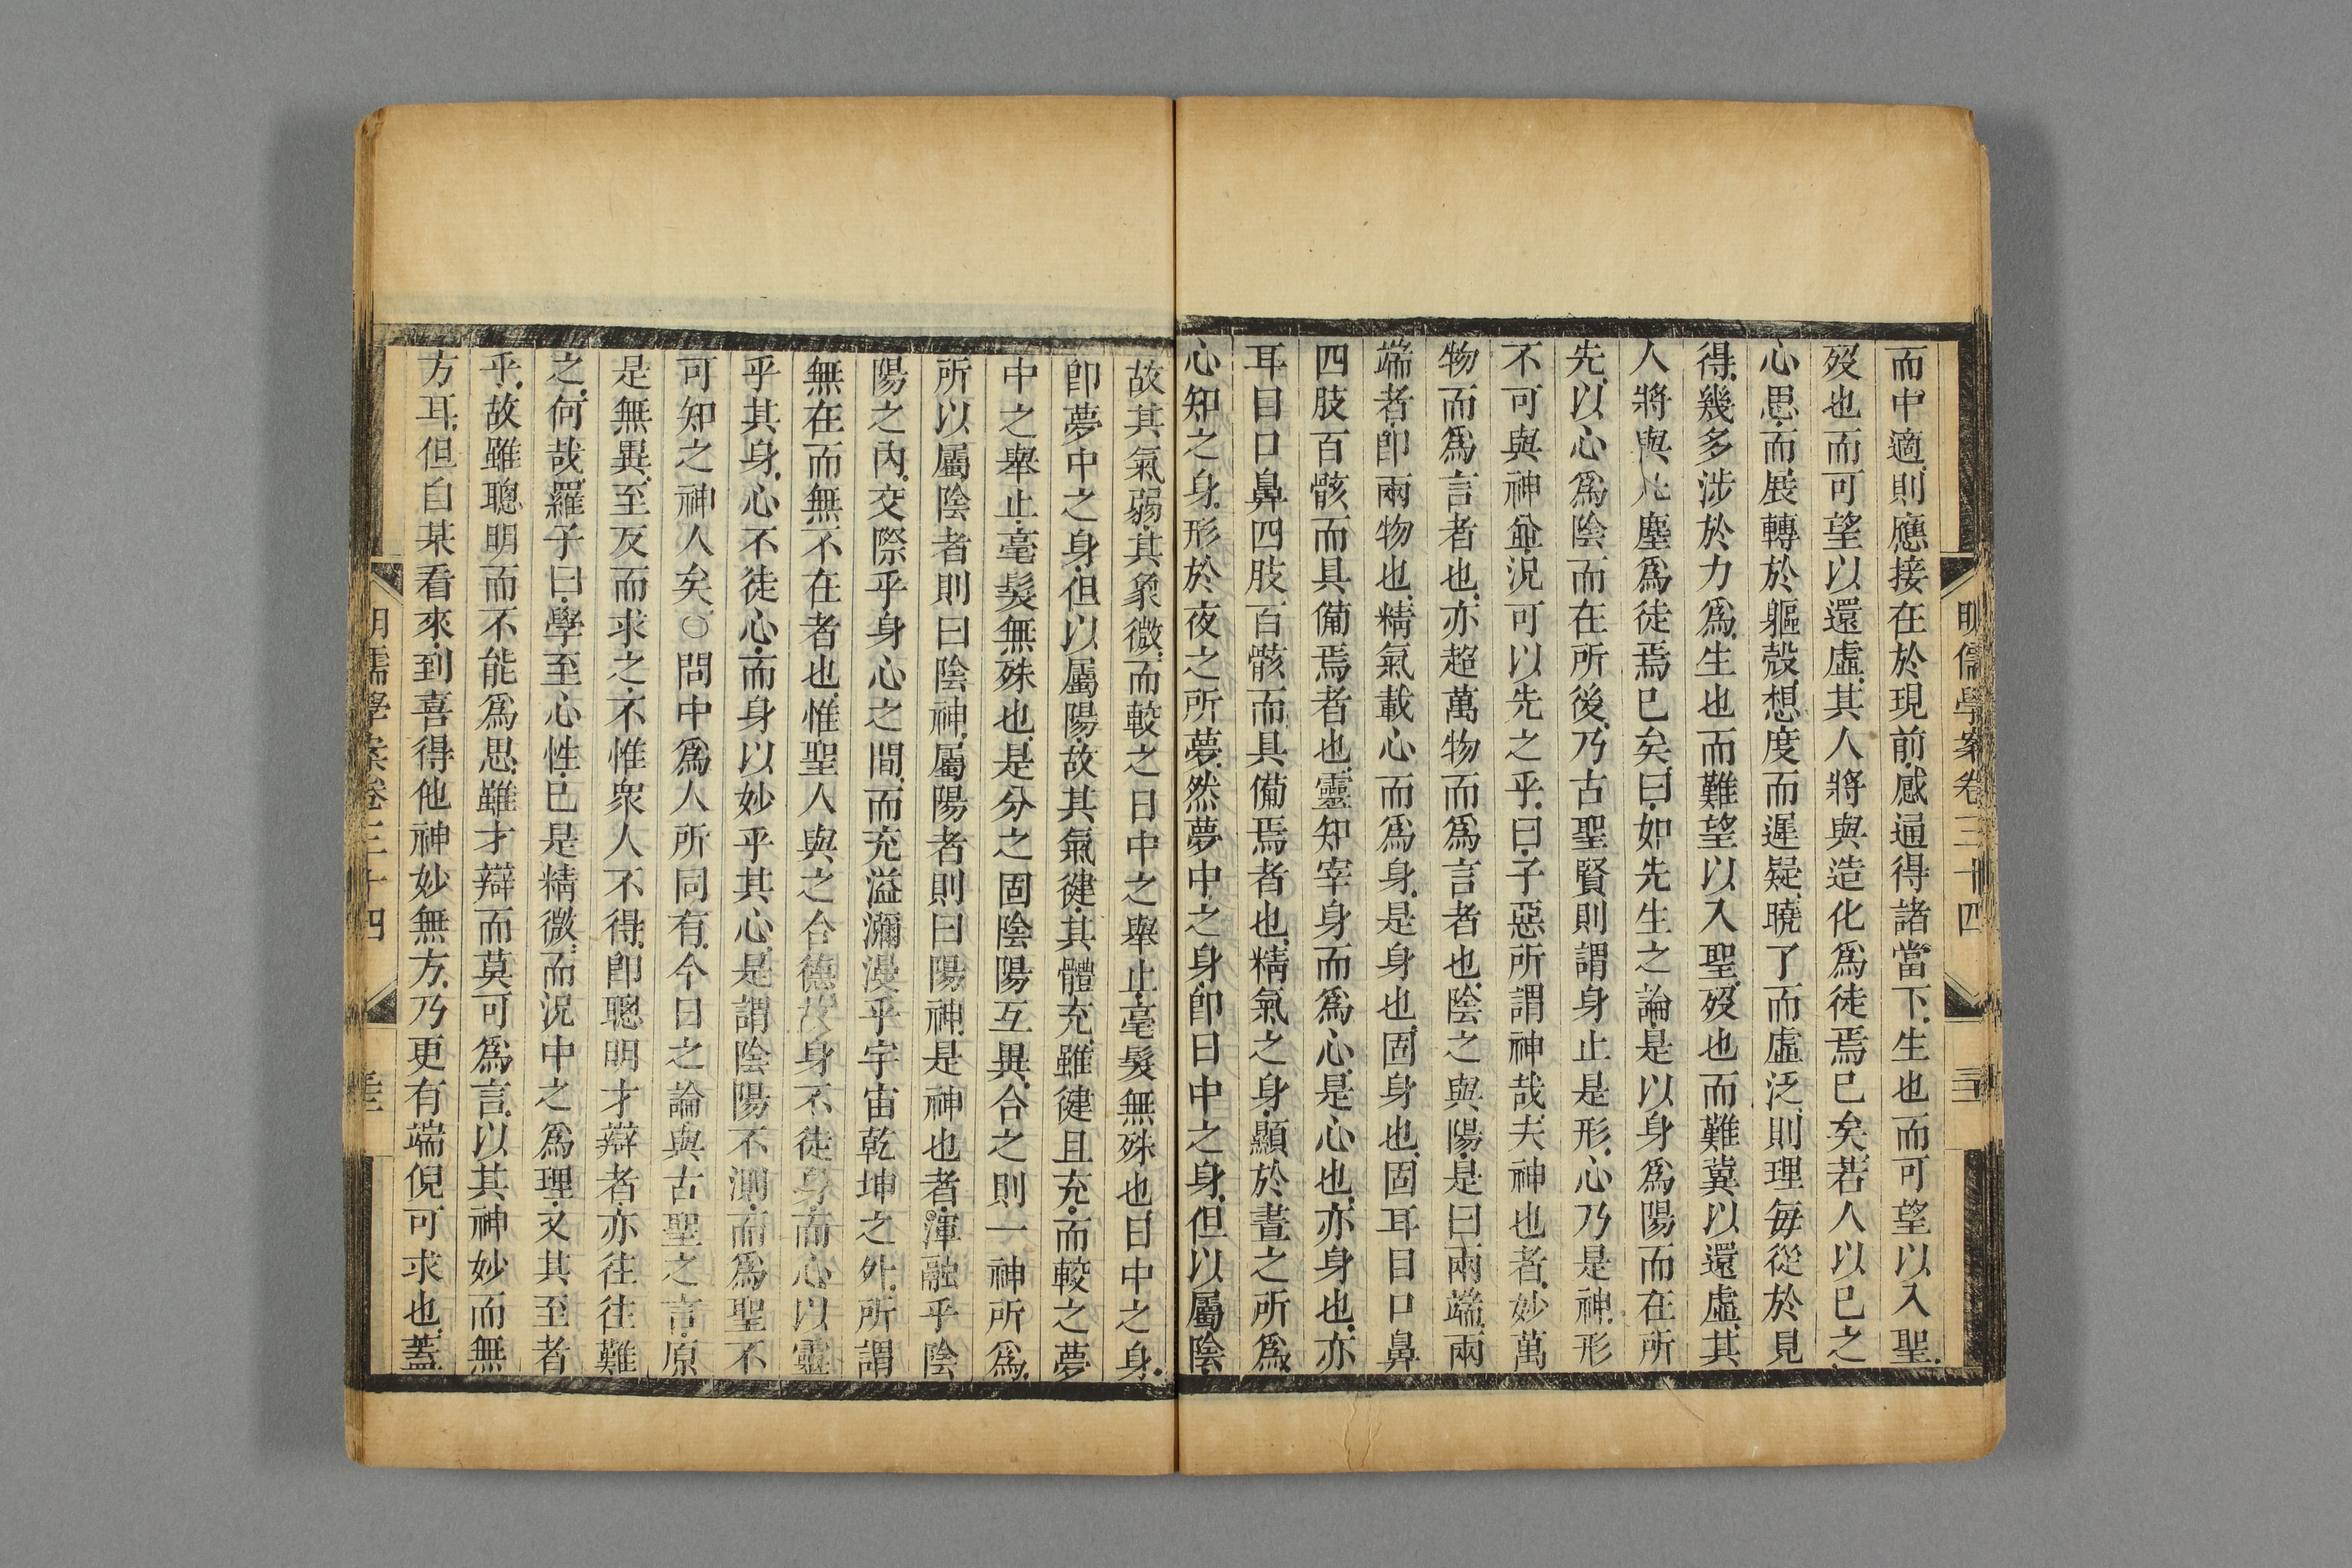 明儒學案卷三十四
而中適則應接在於現前感通得諸當下生也而可望以入聖
歿也而可望以還虛其人將與造化爲徒焉已矣若人以已之
心思而展轉於軀殼想度而遲疑曉了而虛泛則理每從於見
得幾多涉於力爲生也而難望以入聖歿也而難冀以還虛其
人將與凡塵爲徒焉已矣曰如先生之論是以身爲陽而在所
先以心爲陰而在所後乃古聖賢則謂身止是形心乃是神形
不可與神並況可以先之乎曰子惡所謂神哉夫神也者妙萬
物而爲言者也亦超萬物而爲言者也陰之與陽是曰兩端兩
端者卽兩物也精氣載心而爲身是身也固身也固耳目口鼻
四肢百骸而具備焉者也靈知宰身而爲心是心也亦身也亦
耳目口鼻四肢百骸而具備焉者也精氣之身顯於晝之所爲
心知之身形於夜之所夢然夢中之身卽日中之身但以屬陰
故其氣弱其象微而較之日中之舉止毫髮無殊也日中之身
卽夢中之身但以屬陽故其氣健其體充雖健且充而較之夢
中之舉止毫髮無殊也是分之固陰陽互異合之則一神所爲
所以屬陰者則曰陰神屬陽者則曰陽神是神也者渾融乎陰
陽之內交際乎身心之間而充溢瀰漫乎宇宙乾坤之外所謂
無在而無不在者也惟聖人與之合德故身不徒身而心以靈
乎其身心不徒心而身以妙乎其心是謂陰陽不測而爲聖不
可知之神人矣○問中爲人所同有今日之論與古聖之言原
是無異至反而求之不惟衆人不得卽聰明才辯者亦往往難
之何哉羅子曰學至心性已是精微而況中之爲理又其至者
乎故雖聰明而不能爲思雖才辯而莫可爲言以其神妙而無
方耳但自某看來到喜得他神妙無方乃更有端倪可求也蓋
明儒學案卷三十四